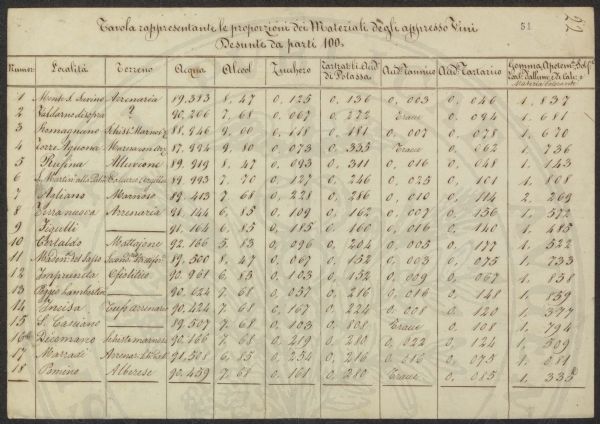 Tavola rappresentante le proporzioni dei Materiali degli appresso Vini
51
22
Desunte da parti 100.
Numeri Località Terreno Acqua Alcool Zucchero Tartrati Acid. di Potassa Acid. Tannico Acid. Tartarico Gomma, Apotema, Solf.ti Materia Colorante
1 Monte S. Savino Arenaria 89.383 8.47 0.125 0.136 0.003 0.046 1.837
2 Valdarno di sopra ? 90.266 7.68 0.067 0.272 Tracce 0.094 1.681
3 Romagnano 88.246 9.60 0.118 0.181 0.007 0.078 1.670
4 Torre a Cona 87.994 9.80 0.073 0.335 Tracce 0.062 1.736
5 Rufina Alluvione 89.919 8.47 0.093 0.311 0.016 0.048 1.143
6 S. Martino alla Palma 89.993 7.70 0.127 0.246 0.025 0.101 1.808
7 Agliano Marnoso 89.413 7.68 0.228 0.286 0.010 0.114 2.269
8 Terranuova Arenaria 91.144 6.85 0.109 0.162 0.007 0.156 1.572
9 91.164 6.85 0.185 0.160 0.016 0.140 1.485
10 Certaldo Mattajone 92.166 5.83 0.096 0.204 0.005 0.177 1.522
11 89.500 8.47 0.067 0.152 0.003 0.075 1.733
12 Impruneta Ofiolitico 90.968 6.85 0.103 0.152 0.009 0.067 1.858
13 Poggio Lambertini 90.024 7.68 0.057 0.216 0.016 0.148 1.859
14 Incisa Tufo arenario 90.424 7.68 0.167 0.224 0.008 0.120 1.377
15 S. Casciano 89.507 7.68 0.103 0.808 Tracce 0.108 1.794
16 Dicomano Schisto marnoso 90.166 7.68 0.219 0.280 0.022 0.124 1.509
17 Marradi 91.508 6.85 0.254 0.216 0.016 0.075 1.081
18 Pomino Alberese 90.459 7.68 0.161 0.280 Tracce 0.085 1.335